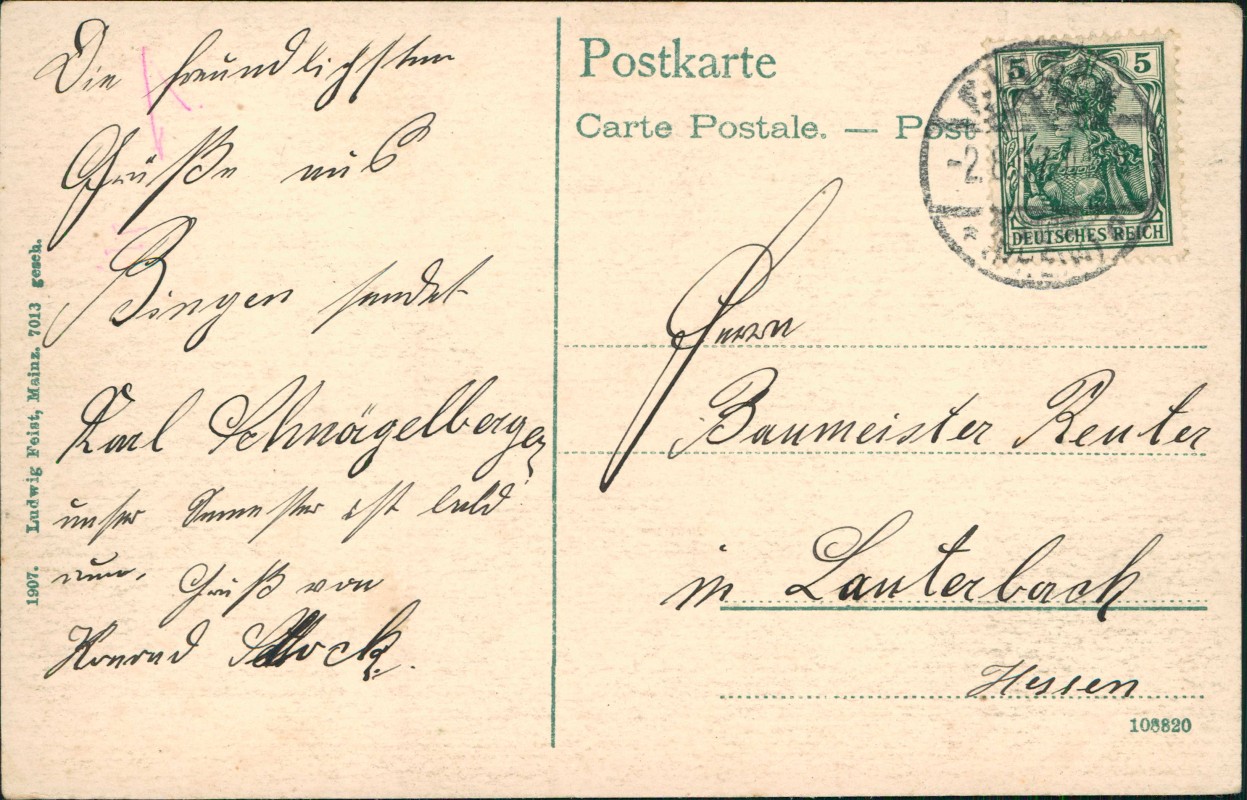 Die freundlichsten
Grüße aus
Bingen sendet
Karl Schnägelberger
unser Semester ist bald
Gruß von
Konrad
1907. Ludwig Feist, Mainz. 7013 gesch.
Postkarte
Carte Postale. — Post
5 5
DEUTSCHES REICH
Herrn
Baumeister Reuter
in Lauterbach
Hessen
108820